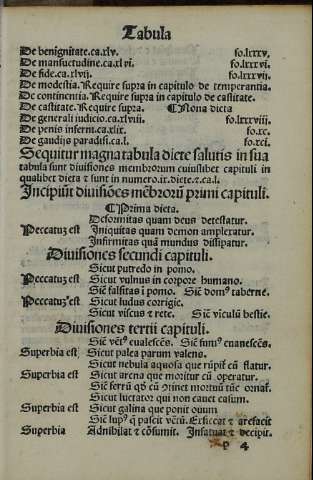 Tabula
De benignitate.ca.xlv. fo.lxxxv.
De mansuetudine.ca.xlvi. fo.lxxxvi.
De fide.ca.xlvij. fo.lxxxvij.
De modestia.Require supra in capitulo de temperantia.
De continentia.Require supra in capitulo de castitate.
De castitate.Require supra. ¶Nona dieta
De generali judicio.ca.xlviij. fo.lxxxviij.
De penis inferni.ca.xlix. fo.xc.
De gaudijs paradisi.ca.l. fo.xci.
Sequitur magna tabula diete salutis in sua
tabula sunt divisiones membrorum cuiuslibet capituli in
qualibet dieta et sunt in numero.ix.diete.et ca.l.
Incipiũt divisiões mẽbrorũ primi capituli.
¶Prima dieta.
Deformitas quam deus detestatur.
Peccatuʒ est Iniquitas quam demon amplexatur.
Infirmitas quã mundus dissipatur.
Divisiones secundi capituli.
Sicut putredo in pomo.
Peccatuʒ est Sicut vulnus in corpore humano.
Siĉ falsitas ĩ pomo. Siĉ domꝰ taberne.
Peccatuʒ est Sicut ludus corrigie.
Sicut viscus et rete. Siĉ vĩculũ bestie.
Divisiones tertii capituli.
Siĉ vẽtꝰ evalescẽs. Siĉ fumꝰ evanescẽs.
Superbia est Sicut palea parum valens.
Sicut nebula aquosa que rũpit cũ flatur.
Superbia est Sicut arena que moritur cũ operatur.
Siĉ ferrũ
Sicut luctator qui non cavet casum.
Superbia est Sicut galina que ponit ouum
Siĉ lupꝰ q̃ pascit vẽtũ. Exsiccat et arefacit
Superbia Adnihilat et cõsumit. Infatuat et decipit.
p 4